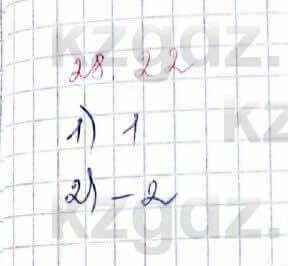 kzgdz.
28. 22
1) 1
kz
2) - 2
kzgdz.